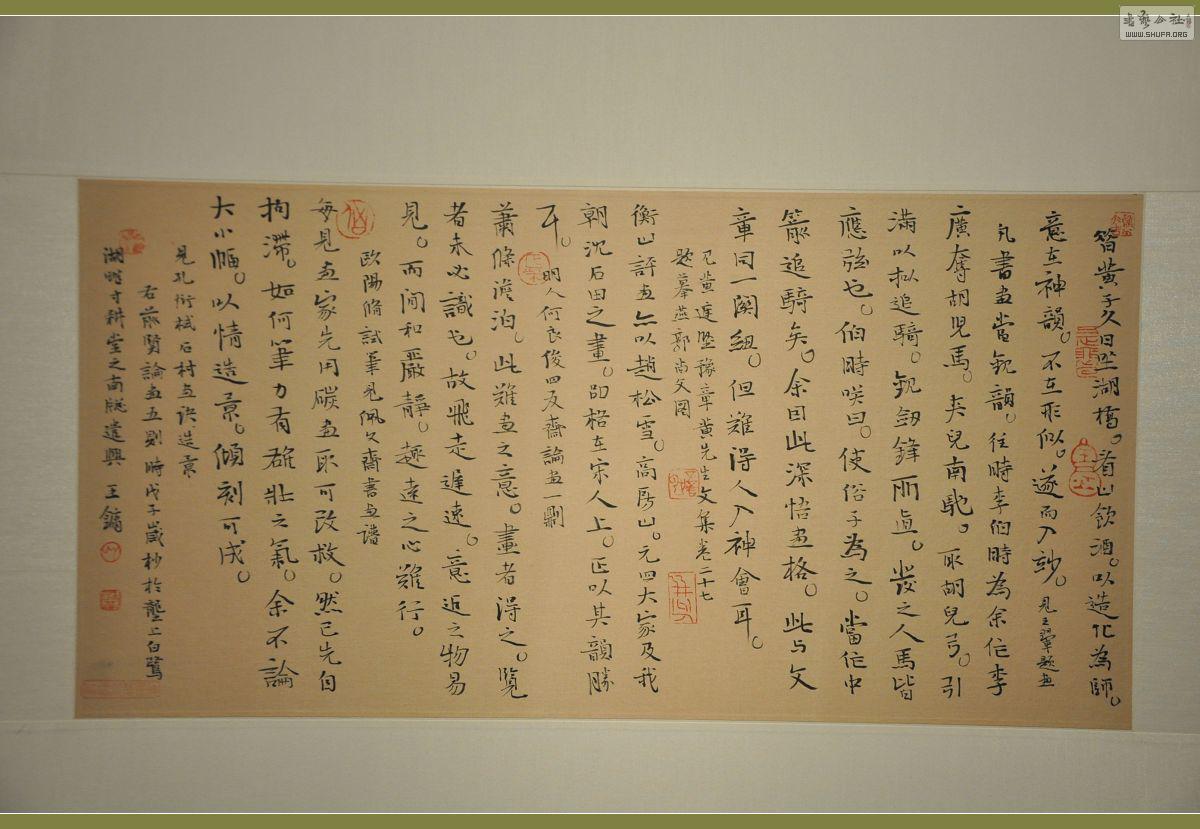 昔黃子久日坐湖橋。看山飲酒。以造化為師。
意在神韻。不在形似。遂而入玅。見王翬題畫
凡書畫當觀韻。往時李伯時為余作李
廣奪胡兒馬。夾兒南馳。取胡兒弓。引
滿以擬追騎。觀箭鋒所直。發之人馬皆
應弦也。伯時咲曰。使俗子為之。當作中
箭追騎矣。余因此深悟畫格。此与文
章同一關紐。但難得人入神會耳。
見黃庭堅豫章黃先生文集卷二十七
題摹燕郭尚父圖
衡山評畫亦以趙松雪。高房山。元四大家及我
朝沈石田之畫。即格在宋人上。正以其韻勝
耳。明人何良俊四友齋論畫一則
蕭條澹泊。此難畫之意。畫者得之。覽
者未必識也。故飛走遲速。意近之物易
見。而閒和嚴靜。趣遠之心難行。
歐陽脩試筆見佩文齋書畫譜
每見畫家先用碳畫取可改救。然已先自
拘滯。如何筆力有雄壯之氣。余不論
大小幅。以情造景。傾刻可成。
見孔衍栻石村畫訣造景
右蒞賢論畫五則時戊子歲杪於龔上白鷺
湖畔寸耕堂之南牎遣興 王鏞
书艺公社
WWW.SHUFA.ORG